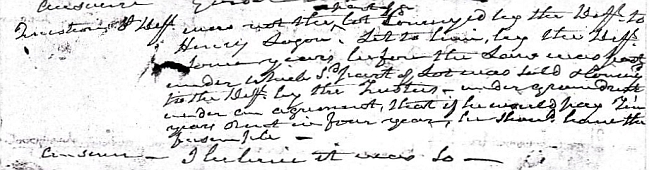 answer
part of
Question by Deff. was not the lot Conveyed by the Deff. to
Henry Logon. Let to him, by the Deff.
Some years, before the Law was past
under which sd. part of Lot was sold & Convey
to the Deff. by the Trustees - under ground rent
under an agreement, that if he would pay
years rent in four years, he should have the
fee simple -
answer - I believe it was So -